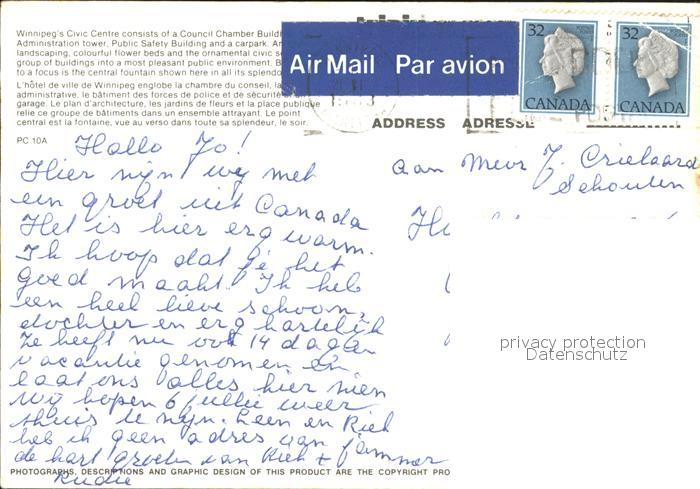 Winnipeg's Civic Centre consists of a Council Chamber Build
Administration tower, Public Safety Building and a carpark. An
landscaping, colourful flower beds and the ornamental sc
group of buildings into a most pleasant public environment. B
to a focus is the central fountain shown here in all its splendo
L'hôtel de ville de Winnipeg englobe la chambre du conseil, la
administrative, le bâtiment des forces de police et de sécurité
garage. Le plan d'architecture, les jardins de fleurs et la place publique
relie ce groupe de bâtiments dans un ensemble attrayant. Le point
central est la fontaine, vue au verso dans toute sa splendeur, le soir.
PC 10A
Air Mail Par avion
32
CANADA
32
CANADA
ADDRESS ADRESSE
Hallo Jo!
Hier zijn wij met
een groet uit Canada
Het is hier erg warm.
Ik hoop dat je het
goed maakt. Ik heb
een heel lieve schoon,
dochter en erg hartelijk
Ze heeft nu 14 dagen
vacantie genomen en
laat ons alles hier zien
Wij hopen 6 jullie weer
thuis te zijn. Leen en Riek
heb ik geen adres van jammer
de hart. groeten van Riek +
Rudie
aan Mevr J. Crielaard
Schouten
privacy protection
Datenschutz
PHOTOGRAPHS, DESCRIPTIONS AND GRAPHIC DESIGN OF THIS PRODUCT ARE THE COPYRIGHT PRO